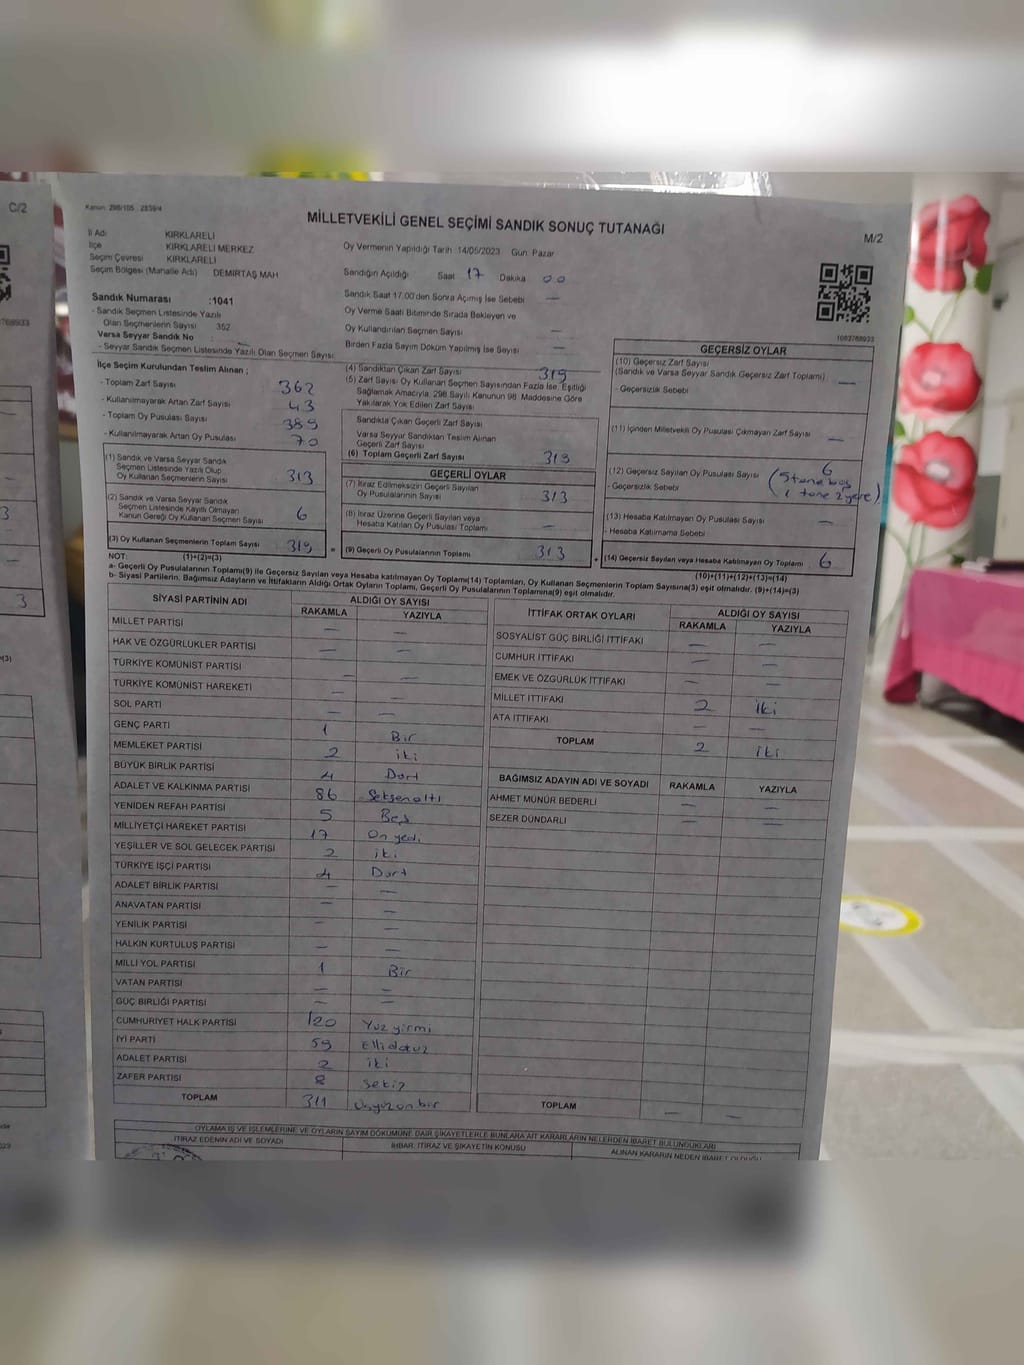 C/2
Kanun: 298/105 , 2839/4
MİLLETVEKİLİ GENEL SEÇİMİ SANDIK SONUÇ TUTANAĞI
M/2
İl Adı KIRKLARELİ
İlçe KIRKLARELİ MERKEZ
Seçim Çevresi KIRKLARELİ
Seçim Bölgesi (Mahalle Adı) DEMİRTAŞ MAH
Oy Vermenin Yapıldığı Tarih :14/05/2023 Gün: Pazar
Sandığın Açıldığı Saat 17 Dakika 00
Sandık Saat 17:00'den Sonra Açımış İse Sebebi —
Oy Verme Saati Bitiminde Sırada Bekleyen ve
Oy Kullandırılan Seçmen Sayısı —
Birden Fazla Sayım Döküm Yapılmış İse Sayısı —
1063768933
Sandık Numarası :1041
- Sandık Seçmen Listesinde Yazılı
Olan Seçmenlerin Sayısı 352
Varsa Seyyar Sandık No :
- Seyyar Sandık Seçmen Listesinde Yazılı Olan Seçmen Sayısı:
İlçe Seçim Kurulundan Teslim Alınan ;
- Toplam Zarf Sayısı 362
- Kullanılmayarak Artan Zarf Sayısı 43
- Toplam Oy Pusulası Sayısı 389
- Kullanılmayarak Artan Oy Pusulası 70
(1) Sandık ve Varsa Seyyar Sandık
Seçmen Listesinde Yazılı Olup
Oy Kullanan Seçmenlerin Sayısı 313
(2) Sandık ve Varsa Seyyar Sandık
Seçmen Listesinde Kayıtlı Olmayan
Kanun Gereği Oy Kullanan Seçmen Sayısı 6
(3) Oy Kullanan Seçmenlerin Toplam Sayısı 319
(1)+(2)=(3)
(4) Sandıktan Çıkan Zarf Sayısı 319
(5) Zarf Sayısı Oy Kullanan Seçmen Sayısından Fazla İse, Eşitliği
Sağlamak Amacıyla, 298 Sayılı Kanunun 98. Maddesine Göre
Yakılarak Yok Edilen Zarf Sayısı
Sandıkta Çıkan Geçerli Zarf Sayısı
Varsa Seyyar Sandıktan Teslim Alınan
Geçerli Zarf Sayısı
(6) Toplam Geçerli Zarf Sayısı 319
GEÇERLİ OYLAR
(7) İtiraz Edilmeksizin Geçerli Sayılan
Oy Pusulalarının Sayısı 313
(8) İtiraz Üzerine Geçerli Sayılan veya
Hesaba Katılan Oy Pusulası Toplamı —
= (9) Geçerli Oy Pusulalarının Toplamı 313 +
GEÇERSİZ OYLAR
(10) Geçersiz Zarf Sayısı
(Sandık ve Varsa Seyyar Sandık Geçersiz Zarf Toplamı) —
- Geçersizlik Sebebi
(11) İçinden Milletvekili Oy Pusulası Çıkmayan Zarf Sayısı —
(12) Geçersiz Sayılan Oy Pusulası Sayısı 6
- Geçersizlik Sebebi (5 tane boş
1 tane 2 yere)
(13) Hesaba Katılmayan Oy Pusulası Sayısı —
- Hesaba Katılmama Sebebi
(14) Geçersiz Sayılan veya Hesaba Katılmayan Oy Toplamı 6
(10)+(11)+(12)+(13)=(14)
NOT:
a- Geçerli Oy Pusulalarının Toplamı(9) ile Geçersiz Sayılan veya Hesaba katılmayan Oy Toplam(14) Toplamları, Oy Kullanan Seçmenlerin Toplam Sayısına(3) eşit olmalıdır. (9)+(14)=(3)
b- Siyasi Partilerin, Bağımsız Adayların ve İttifakların Aldığı Ortak Oyların Toplamı, Geçerli Oy Pusulalarının Toplamına(9) eşit olmalıdır.
SİYASİ PARTİNİN ADI ALDIĞI OY SAYISI
RAKAMLA YAZIYLA
MİLLET PARTİSİ — —
HAK VE ÖZGÜRLÜKLER PARTİSİ — —
TÜRKİYE KOMÜNİST PARTİSİ — —
TÜRKİYE KOMÜNİST HAREKETİ — —
SOL PARTİ — —
GENÇ PARTİ 1 Bir
MEMLEKET PARTİSİ 2 iki
BÜYÜK BİRLİK PARTİSİ 4 Dört
ADALET VE KALKINMA PARTİSİ 86 Seksenaltı
YENİDEN REFAH PARTİSİ 5 Beş
MİLLİYETÇİ HAREKET PARTİSİ 17 On yedi
YEŞİLLER VE SOL GELECEK PARTİSİ 2 iki
TÜRKİYE İŞÇİ PARTİSİ 4 Dört
ADALET BİRLİK PARTİSİ — —
ANAVATAN PARTİSİ — —
YENİLİK PARTİSİ — —
HALKIN KURTULUŞ PARTİSİ — —
MİLLİ YOL PARTİSİ 1 Bir
VATAN PARTİSİ — —
GÜÇ BİRLİĞİ PARTİSİ — —
CUMHURİYET HALK PARTİSİ 120 Yüz yirmi
İYİ PARTİ 59 Ellidokuz
ADALET PARTİSİ 2 iki
ZAFER PARTİSİ 8 Sekiz
TOPLAM 311 Üçyüzonbir
İTTİFAK ORTAK OYLARI ALDIĞI OY SAYISI
RAKAMLA YAZIYLA
SOSYALİST GÜÇ BİRLİĞİ İTTİFAKI — —
CUMHUR İTTİFAKI — —
EMEK VE ÖZGÜRLÜK İTTİFAKI — —
MİLLET İTTİFAKI 2 iki
ATA İTTİFAKI — —
TOPLAM 2 iki
BAĞIMSIZ ADAYIN ADI VE SOYADI RAKAMLA YAZIYLA
AHMET MÜNÜR BEDERLİ — —
SEZER DÜNDARLI — —
TOPLAM — —
OYLAMA İŞ VE İŞLEMLERİNE VE OYLARIN SAYIM DÖKÜMÜNE DAİR ŞİKAYETLERLE BUNLARA AİT KARARLARIN NELERDEN İBARET BULUNDUKLARI
İTİRAZ EDENİN ADI VE SOYADI İHBAR, İTİRAZ VE ŞİKAYETİN KONUSU ALINAN KARARIN NEDEN İBARET OLDUĞU